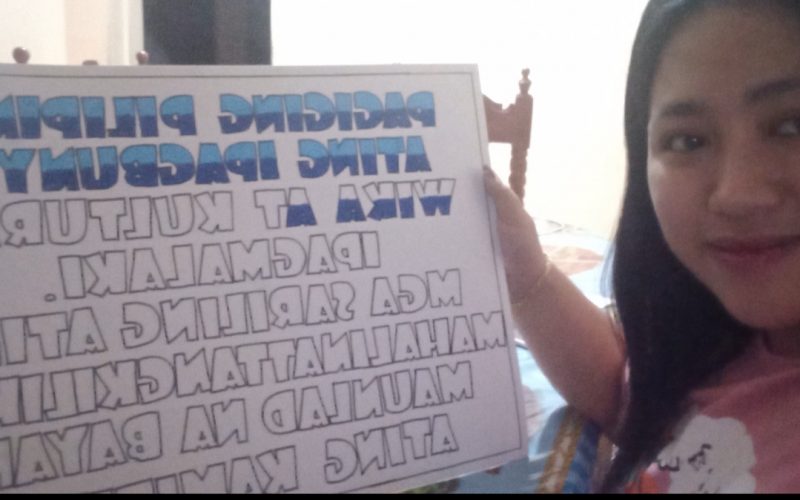 PAGIGING PILIPIN
ATING IPAGBUNY
WIKA AT KULTUR
IPAGMALAKI.
MGA SARILING ATI
MAHALINATTANGKILI
MAUNLAD NA BAYA
ATING KAMI